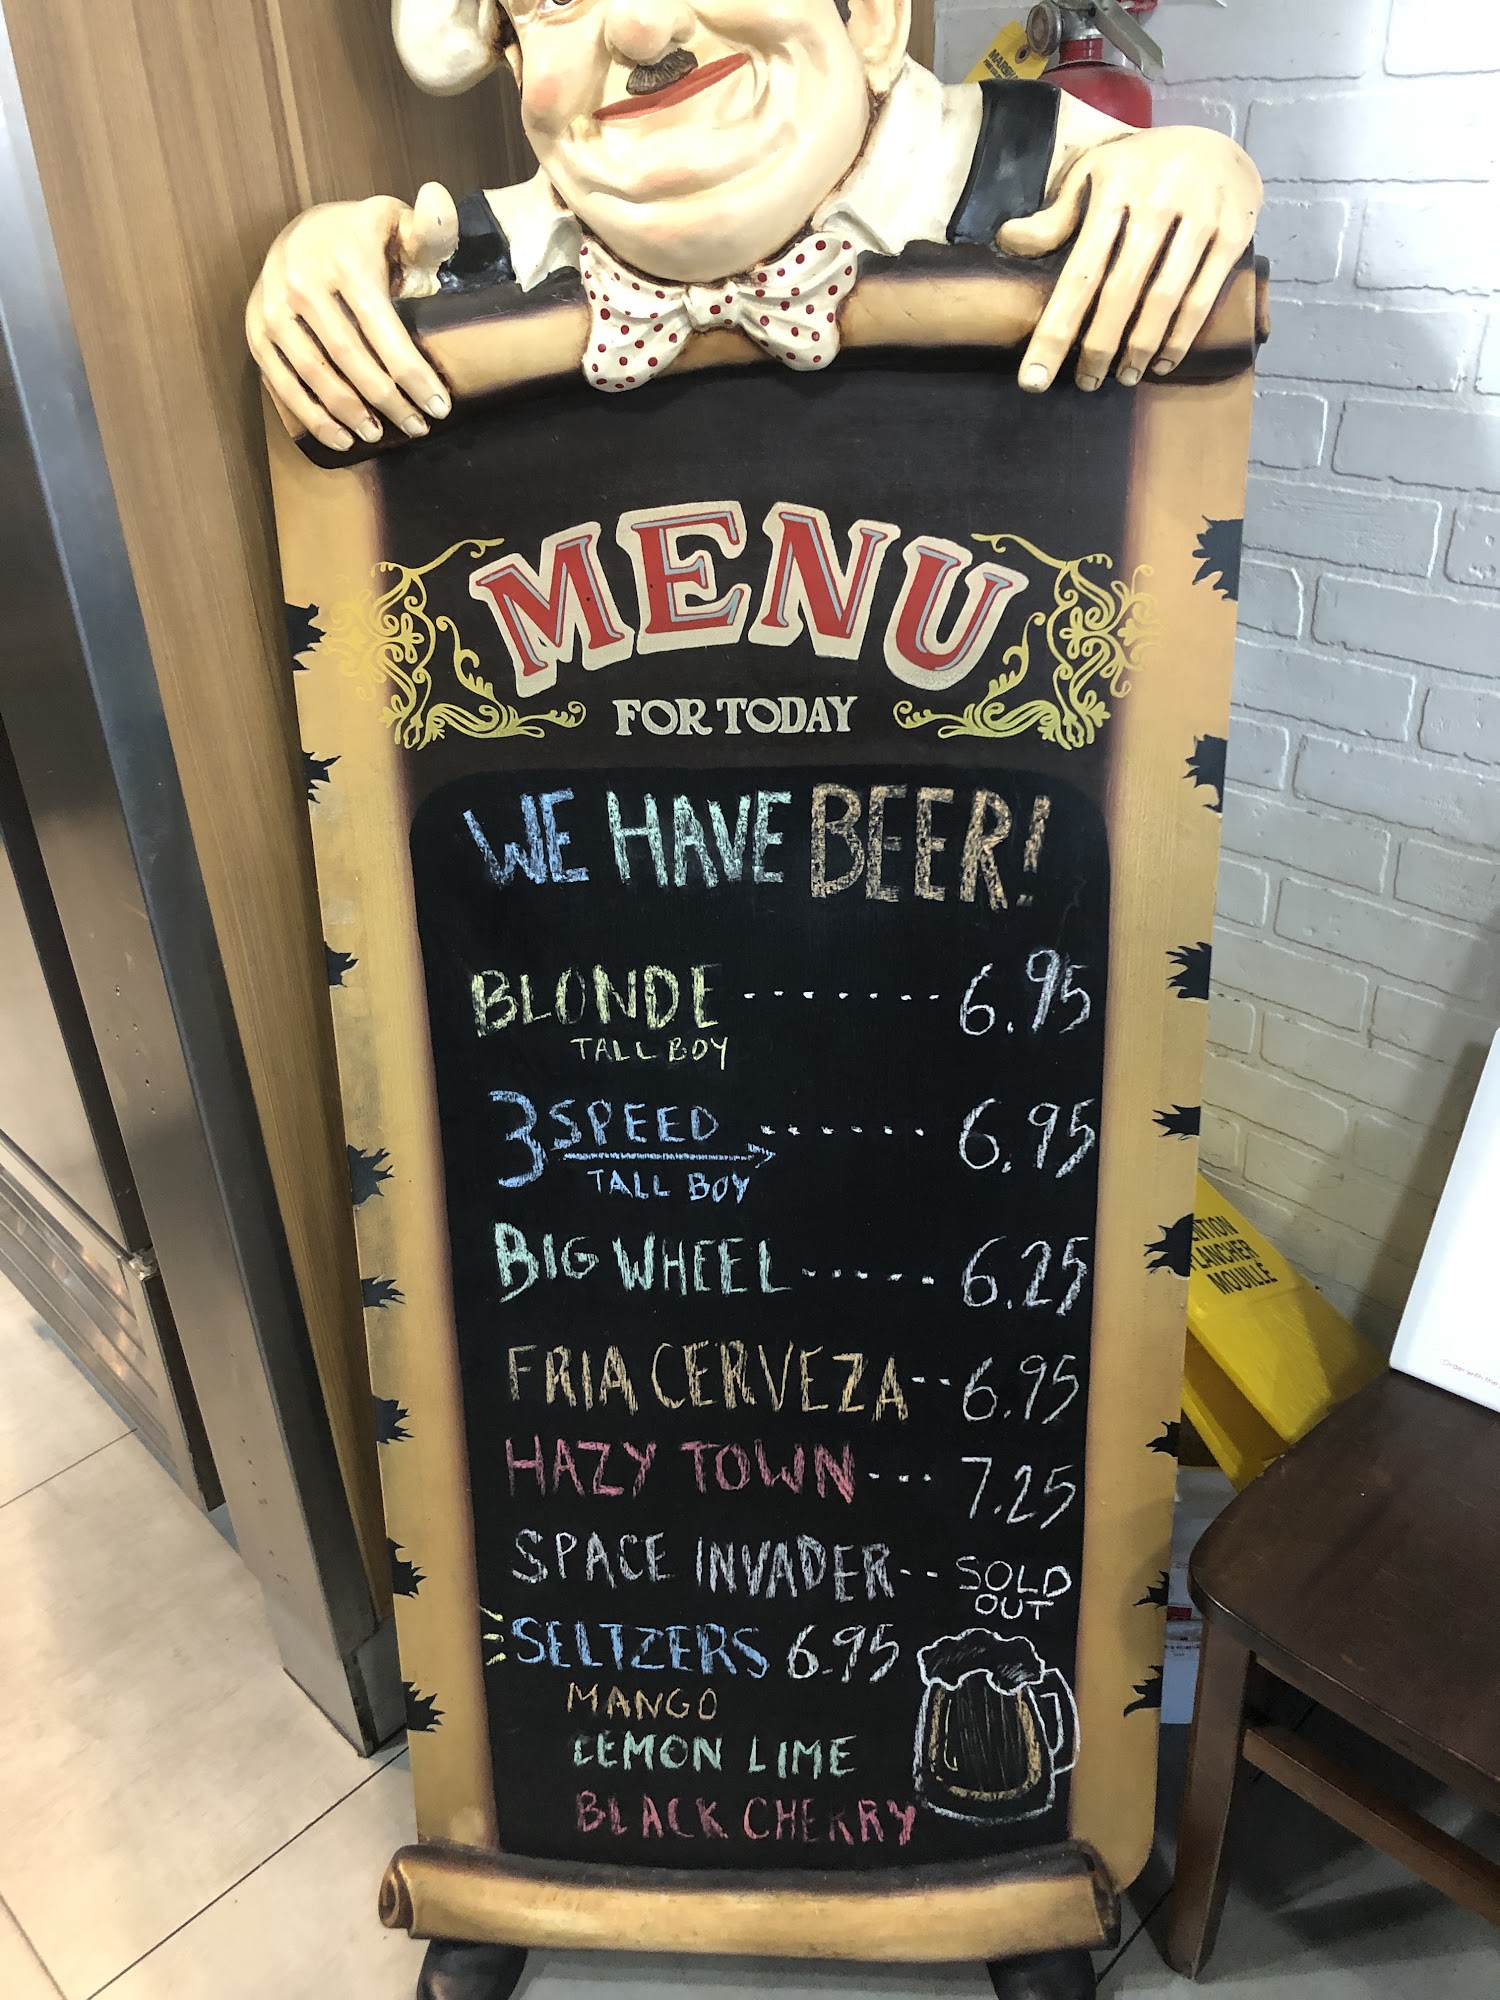 MENU
FOR TODAY
WE HAVE BEER!
BLONDE ------- 6.95
TALL BOY
3 SPEED ------ 6.95
TALL BOY
BIG WHEEL ----- 6.25
FRIA CERVEZA -- 6.95
HAZY TOWN --- 7.25
SPACE INVADER -- SOLD
OUT
SELTZERS 6.95
MANGO
LEMON LIME
BLACK CHERRY
PLANCHER
MOUILLÉ